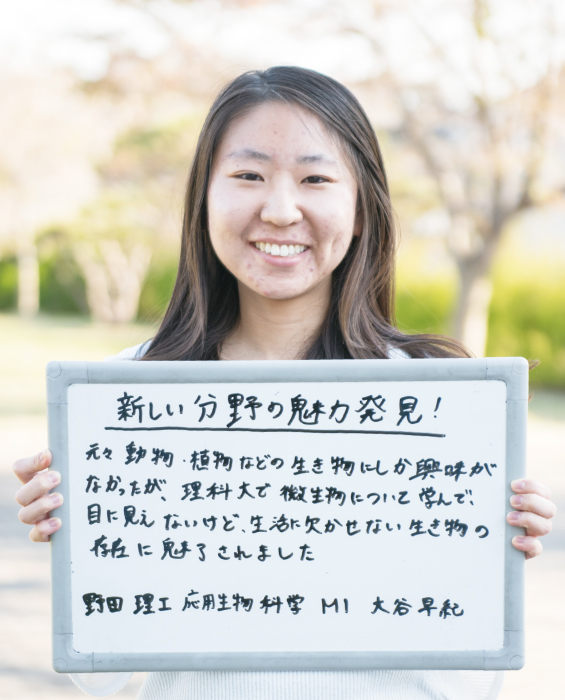 新しい分野の魅力発見!
元々動物・植物などの生き物にしか興味が
なかったが、理科大で微生物について学んで、
目に見えないけど、生活に欠かせない生き物の
存在に魅了されました
野田 理工 応用生物科学 M1 大谷早紀